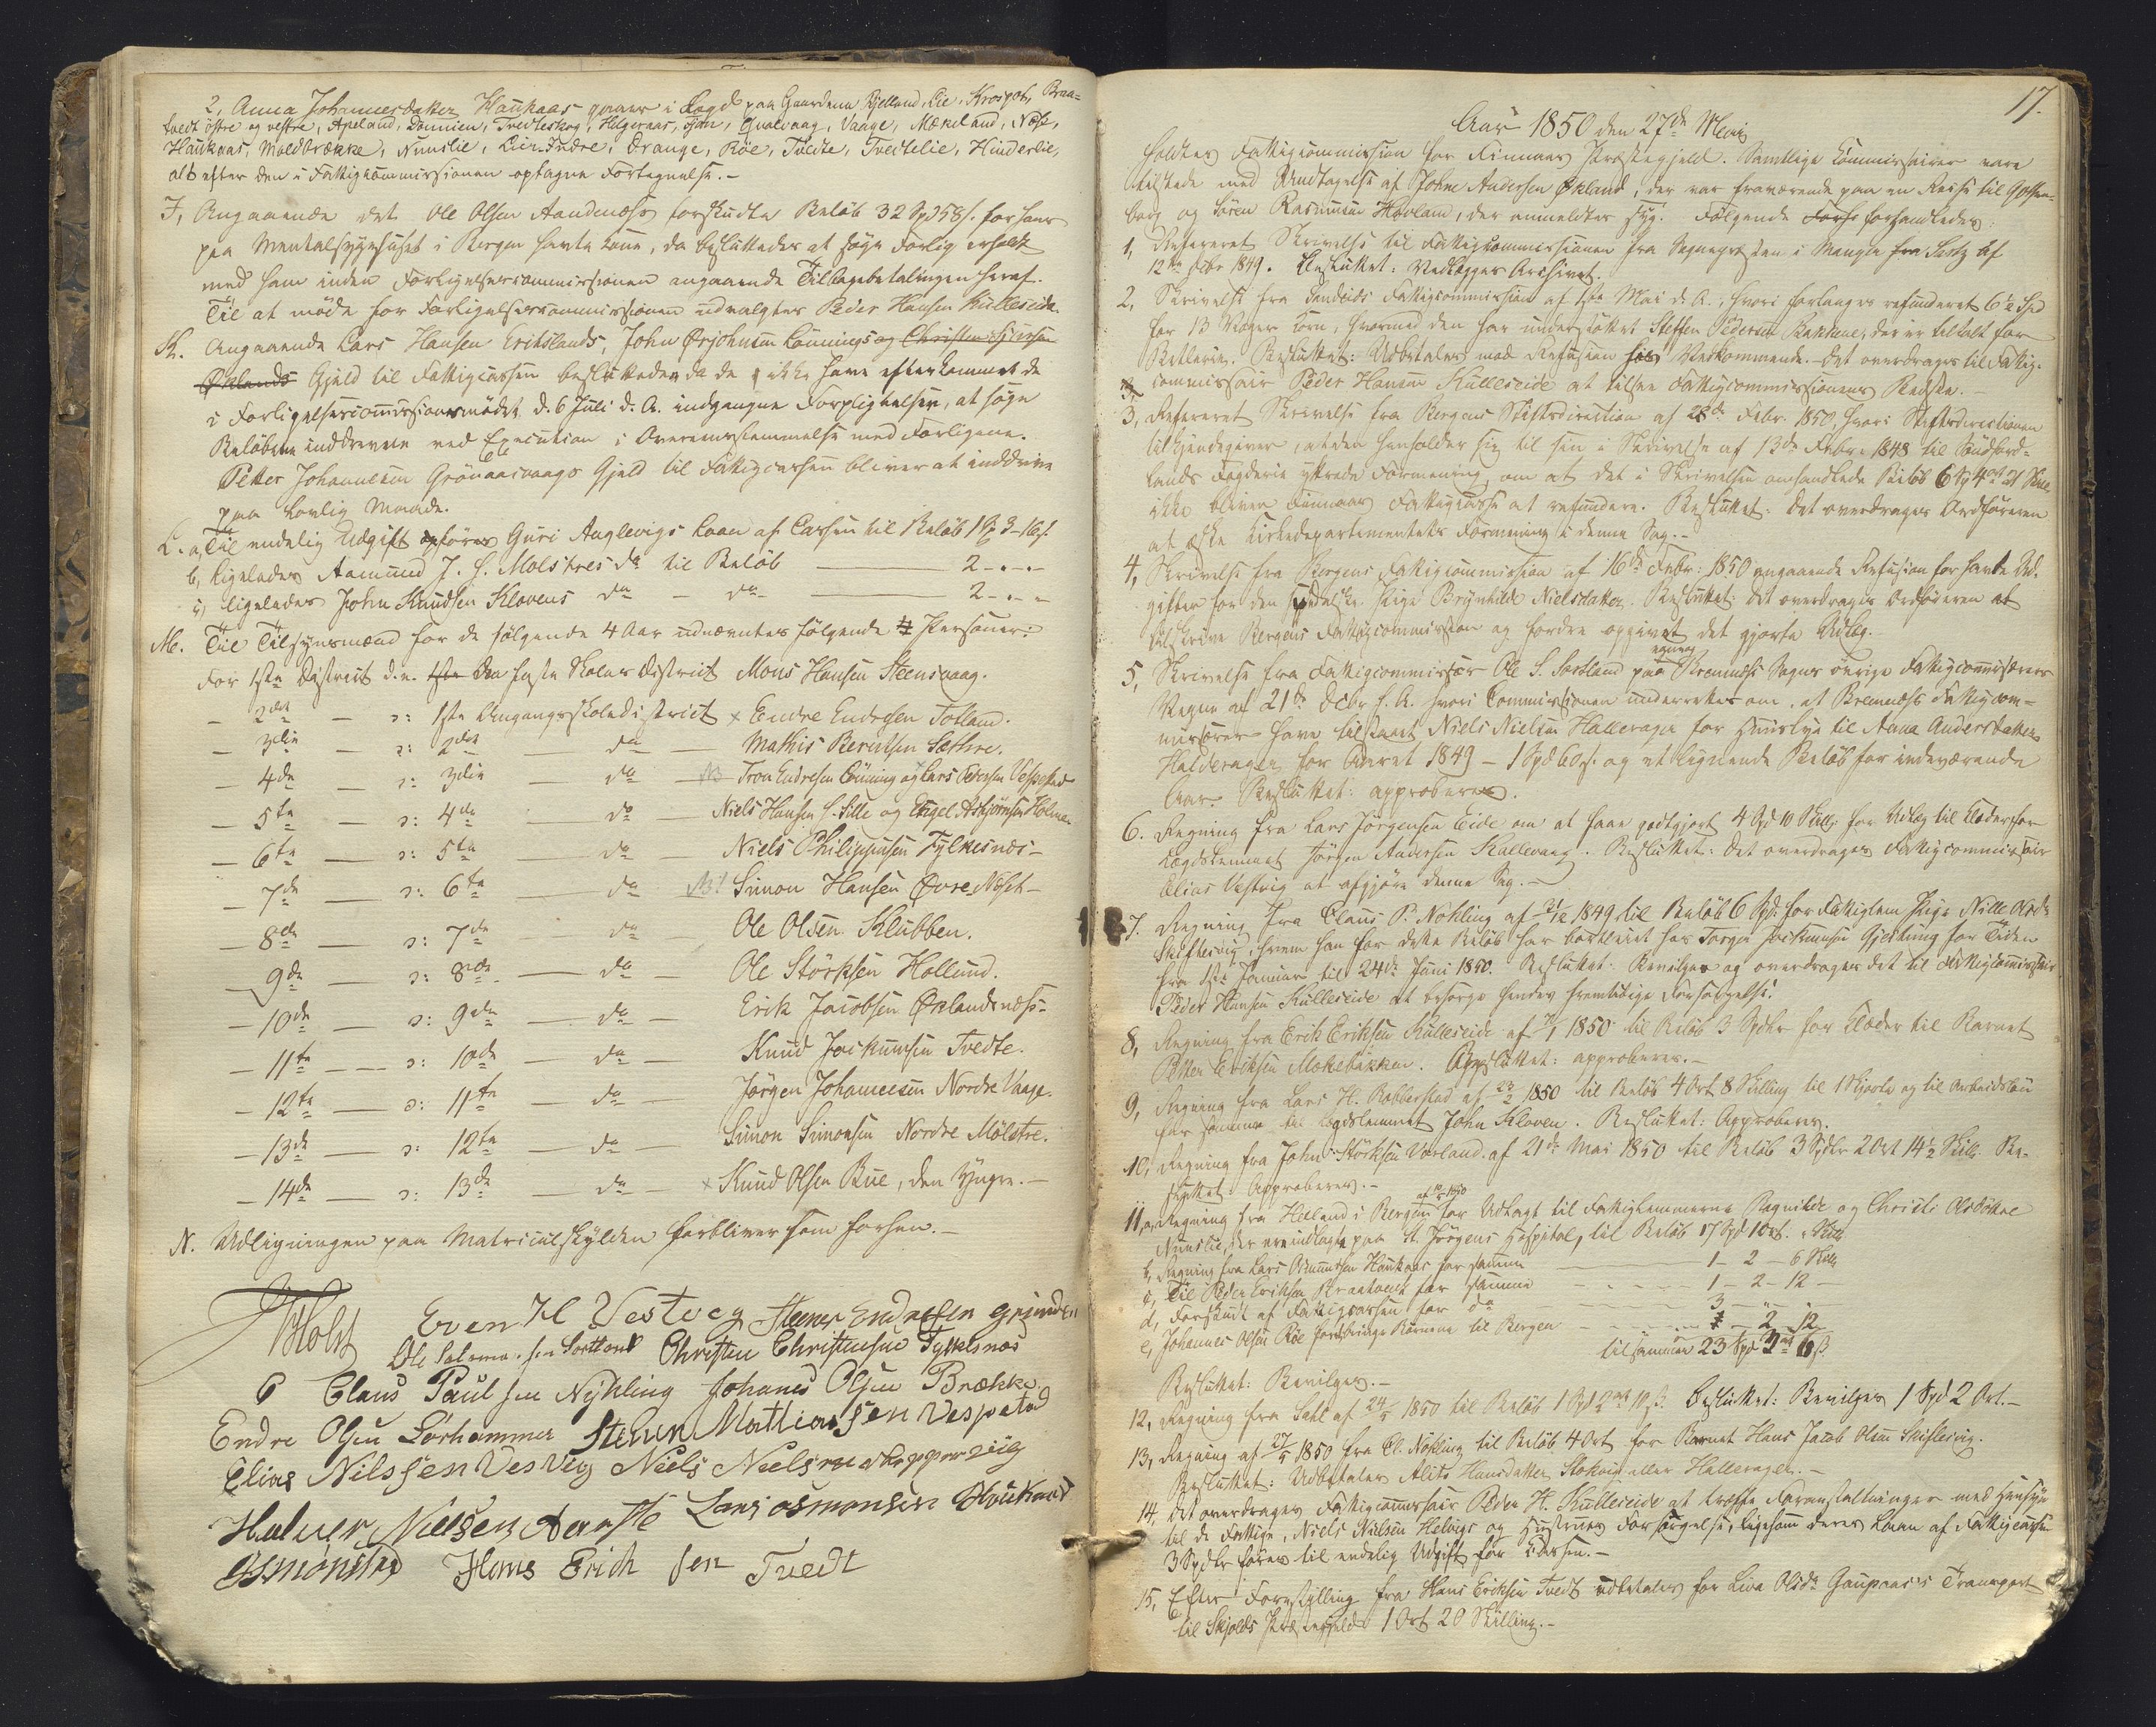 2, Anna Johannesdatter Haukaas gaaer i Lægd paa Gaardene Kjelland, Lie, Krospot, Braa-
tvedt östre og vestre, Apeland, Dommien, Tvedteskog, Helgeraas, Tjon, Qvalvaag, Vaage, Mækeland, Nøse,
Haukaas, Moldbrække, Nunslie, Lier-Indre, Orange, Röe, Tvedte, Tvedtelie, Hinderlie,
alt efter den i Fattigkommissionen optagne Fortegnelse.-
J, Angaaende det Ole Olsen Aandenæss forskudte Beløb 32 Spd 58 s. for hans
paa Mentalsygehuset i Bergen havte Kone, da besluttedes at søge Forlig erholdt
med ham inden Forligelsescommissionen angaaende Tilbagebetalingen heraf.
Til at møde for Forligelsescommissionen udvalgtes Peder Hansen Kulleseide.
K. Angaaende Lars Hansen Eriksbands, John Ørjohnsen Lönnings og Christen Iversen
Øklands Gjeld til Fattigcassen besluttedes da de ikke have efterkommet de
i Forligelsescommissionsmødet d. 6 Juli d. A. indgangne Forpligtelser, at søge
Beløbene inddrevne ved Execution i Overensstemmelse med Forligene.
Petter Johannesen Grönaasvaags Gjeld til Fattigcassen bliver at inddrive
paa lovlig Maade.
L. a, Til endelig Udgift opføres Guri Auglevigs Laan af Cassen til Beløb 1 Sp 3 - 16 s.
b, ligeledes Aamund J. H. Molstres do til Beløb 2 - " - "
c, ligeledes John Knudsen Klovens do - do 2 - " - "
M. Til Tilsynsmænd for de følgende 4 Aar udnævntes følgende 14 Personer:
For 1ste District d.e. 1ste den faste Skoles District Mons Hansen Steensvaag.
- 2det - ɔ: 1ste Omgangsskoledistrict x Endre Endresen Totland.
- 3die - ɔ: 2det - do - Mathis Berntsen Sætre.
- 4de - ɔ: 3die - do - NB Tron Endresen Lönning og Lars Pedersen Vespestad
- 5te - ɔ: 4de - do - Niels Hansen H. Lille og Engel Asbjørnsen Holme.
- 6te - ɔ: 5te - do - Niels Philippusen Fylkesnæs-
- 7de - ɔ: 6te - do - NB! Simon Hansen Øvre-Næseh-
- 8de - ɔ: 7de - do - Ole Olsen Klubben.
- 9de - ɔ: 8de - do - Ole Störksen Hollund.
- 10de - ɔ: 9de - do - Erik Jacobsen Øklandsnæss-
- 11te - ɔ: 10de - do - Knud Jockumsen Tvedte.
- 12te - ɔ: 11te - do - Jörgen Johannesen Nordre Vaage.
- 13de - ɔ: 12te - do - Simon Simonsen Nordre Mölstre.
- 14de - ɔ: 13de - do - x Knud Olsen Bue, den Yngre.-
N. Udligningen paa Matriculskylden forbliver som forhen.-
Holst Even H Vestveg Steener Endresen Grinde
Ole Salamonsen Sortland Christen Christensen Fylkesnæs
Claus Paulsen Nykling Johanes Olsen Brække
Endre Olsen Sørhammer Stener Mathiassen Vespestad
Elias Nilssen Vesvig Niels Nielsen Skappevüg
Halver Nielsen Aarste Lars Osmonsen Houkaas
Osmonsen Hans Erichsen Tvedt
17.
Aar 1850 den 27de Mai
holdtes Fattigcommission for Finnaas Præstegjeld. Samtlige Commissairer vare
tilstede med Undtagelse af Johne Andersen Økland, der var fraværende paa en Reise til Gothen-
borg og Sören Rasmussen Hovland, der anmeldtes syg. Følgende Forh forhandledes:
1, Refereret Skrivelse til Fattigkommissionen fra Sognepræsten i Manger fra Sartz af
12te Febr 1849. Besluttet: Vedlægges Archivet.
2, Skrivelse fra Sandeids Fattigcommission af 1ste Mai d. A., hvori forlanges refunderet 6½ Spd
for 13 Voger Korn, hvormed den har understøttet Steffen Pedersen Bakkene, der er tiltalt for
Betlerie. Besluttet: Udbetales mod Refusion hos Vedkommende.- Det overdrages til Fattig-
commissair Peder Hansen Kulleseide at tilsee Fattigcommissionens Bedste.-
3, Refereret Skrivelse fra Bergens Stiftsdirection af 28de Febr. 1850, hvori Stiftsdirectionen
tilkjendegiver, at den henholder sig til sin i Skrivelse af 13de Febr. 1848 til Söndhord-
lands Fogderie yttrede Formening, om at det i Skrivelsen omhandlede Beløb 6 Sp 4 ort 21 Skill
ikke bliver Finnaas Fattigcasse at refundere. Besluttet: Det overdrages Ordföreren
at æske Kirkedepartementets Formening i denne Sag.-
4, Skrivelse fra Bergens Fattigcommission af 16de Febr: 1850 angaaende Refusion for havte Ud-
gifter for den spedalske Pige Brynhilde Nielsdatter. Besluttet: Det overdrages Ordføreren at
tilskrive Bergens Fattigcommission og fordre opgivet det gjorte Udlæg.
5, Skrivelse fra Fattigcommissær Ole S. Sortland paa egne og Bremnæs Sogns øvrige Fattigcommissærers
Vegne af 21de Decbr f. A. hvori Commissionen underrettes om, at Bremnæss Fattigcom-
missærer have tilstaaet Niels Nielsen Hallerager for Huuslye til Anna Andersdatter
Halderager for Aaret 1849 - 1 Spd 60 s. og et lignende Beløb for indeværende
Aar. Besluttet: approberes.
6. Regning fra Lars Jørgensen Eide om at faae godtgjort 4 Spd 10 Skill: for Udlæg til Klæder for
Lægdslemmet Jørgen Andersen Kallevaag. Besluttet: Det overdrages Fattigcommissair
Elias Vestvig at afgjøre denne Sag.-
7. Regning fra Claus P. Nokling af 31/12 1849 til Beløb 6 Spd: for Fattiglem Pige Nille Olsd:
Skiftesvig, hvem han for dette Beløb har bortleiet hos Torger Jockumsen Gjerking for Tiden
fra 1ste Januar til 24de Juni 1850. Besluttet: Bevilges og overdrages det til Fattigcommissair
Peder Hansen Kulleseide at besørge hendes fremtidige Forsørgelse.
8, Regning fra Erik Eriksen Kulleseide af 7/1 1850 til Beløb 3 Spdlr for Klæder til Barnet
Petter Eriksen Mækebakken. Besluttet: approberes.-
9, Regning fra Lars H. Robberstad af 23/2 1850 til Beløb 4 Ort 8 Skilling til 1 Skjorte og til Arbeidsløn
for samme til Lægdslemmet John Kloven. Besluttet: Approberes.
10, Regning fra John Störksen Vorland af 21de Mai 1850 til Beløb 3 Spdlr 2 Ort 14½ Skill. Be-
sluttet: Approberes.-
11, a, Regning fra Helland i Bergen af 10/5 1850 for Udtagt til Fattiglemmerne Ragnilde og Christi Olsdöttre
Nunslie, der ere indlagte paa St. Jørgens Hospital, til Beløb 17 Spd 1 Ort. " Skill
b, Regning fra Lars Osmundsen Haukaas for samme 1 - 2 - 6 Skill
c, Til Peder Eriksen Braatvedt for samme 1 - 2 - 12 -
d, Forskudt af Fattigcassen for do 3 - " - " -
e, Johannes Olsen Röe for at bringe Børnene til Bergen " - 2 - 12
tilsammen 23 Spd 3 ort 6 ß.
Besluttet: Bevilges.-
12, Regning fra Dahl af 24/5 1850 til Beløb 1 Spd 2 ort 10 ß. Besluttet: Bevilges 1 Spd 2 Ort.-
13, Regning af 27/5 1850 fra Cl. Nökling til Beløb 4 Ort for Barnet Hans Jacob Olsen Skiftesvig.
Besluttet: Udbetales Alits Hansdatter Stokvig eller Hallerager.-
14. Det overdrages Fattigcommissair Peder H. Kulleseide at træffe Foranstaltninger med Hensyn
til de Fattige, Niels Nielsen Helvigs og Hustrues Forsørgelse, ligesom deres Laan af Fattigcassen
3 Spdlr føres til endelig Udgift for Cassen.-
15, Efter Forestilling fra Hans Eriksen Tvedt udbetales for Liva Olsdr Gaupaas's Transport
til Skjolds Præstegjeld 1 Ort 20 Skilling.-